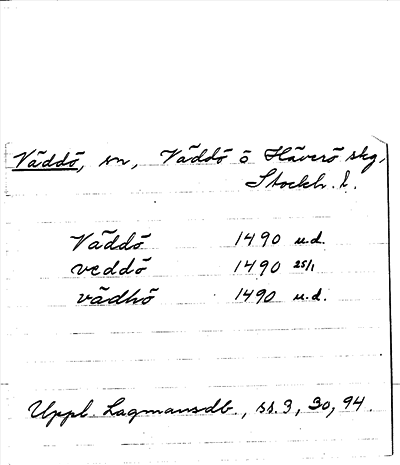 Väddö, sn, Väddö o Häverö skg,
Stockh. l.
Väddö 1490 u.d.
veddö 1490 25/1
vädhö 1490 u.d.
Uppl. Lagmansdb., ss. 3, 30, 94.